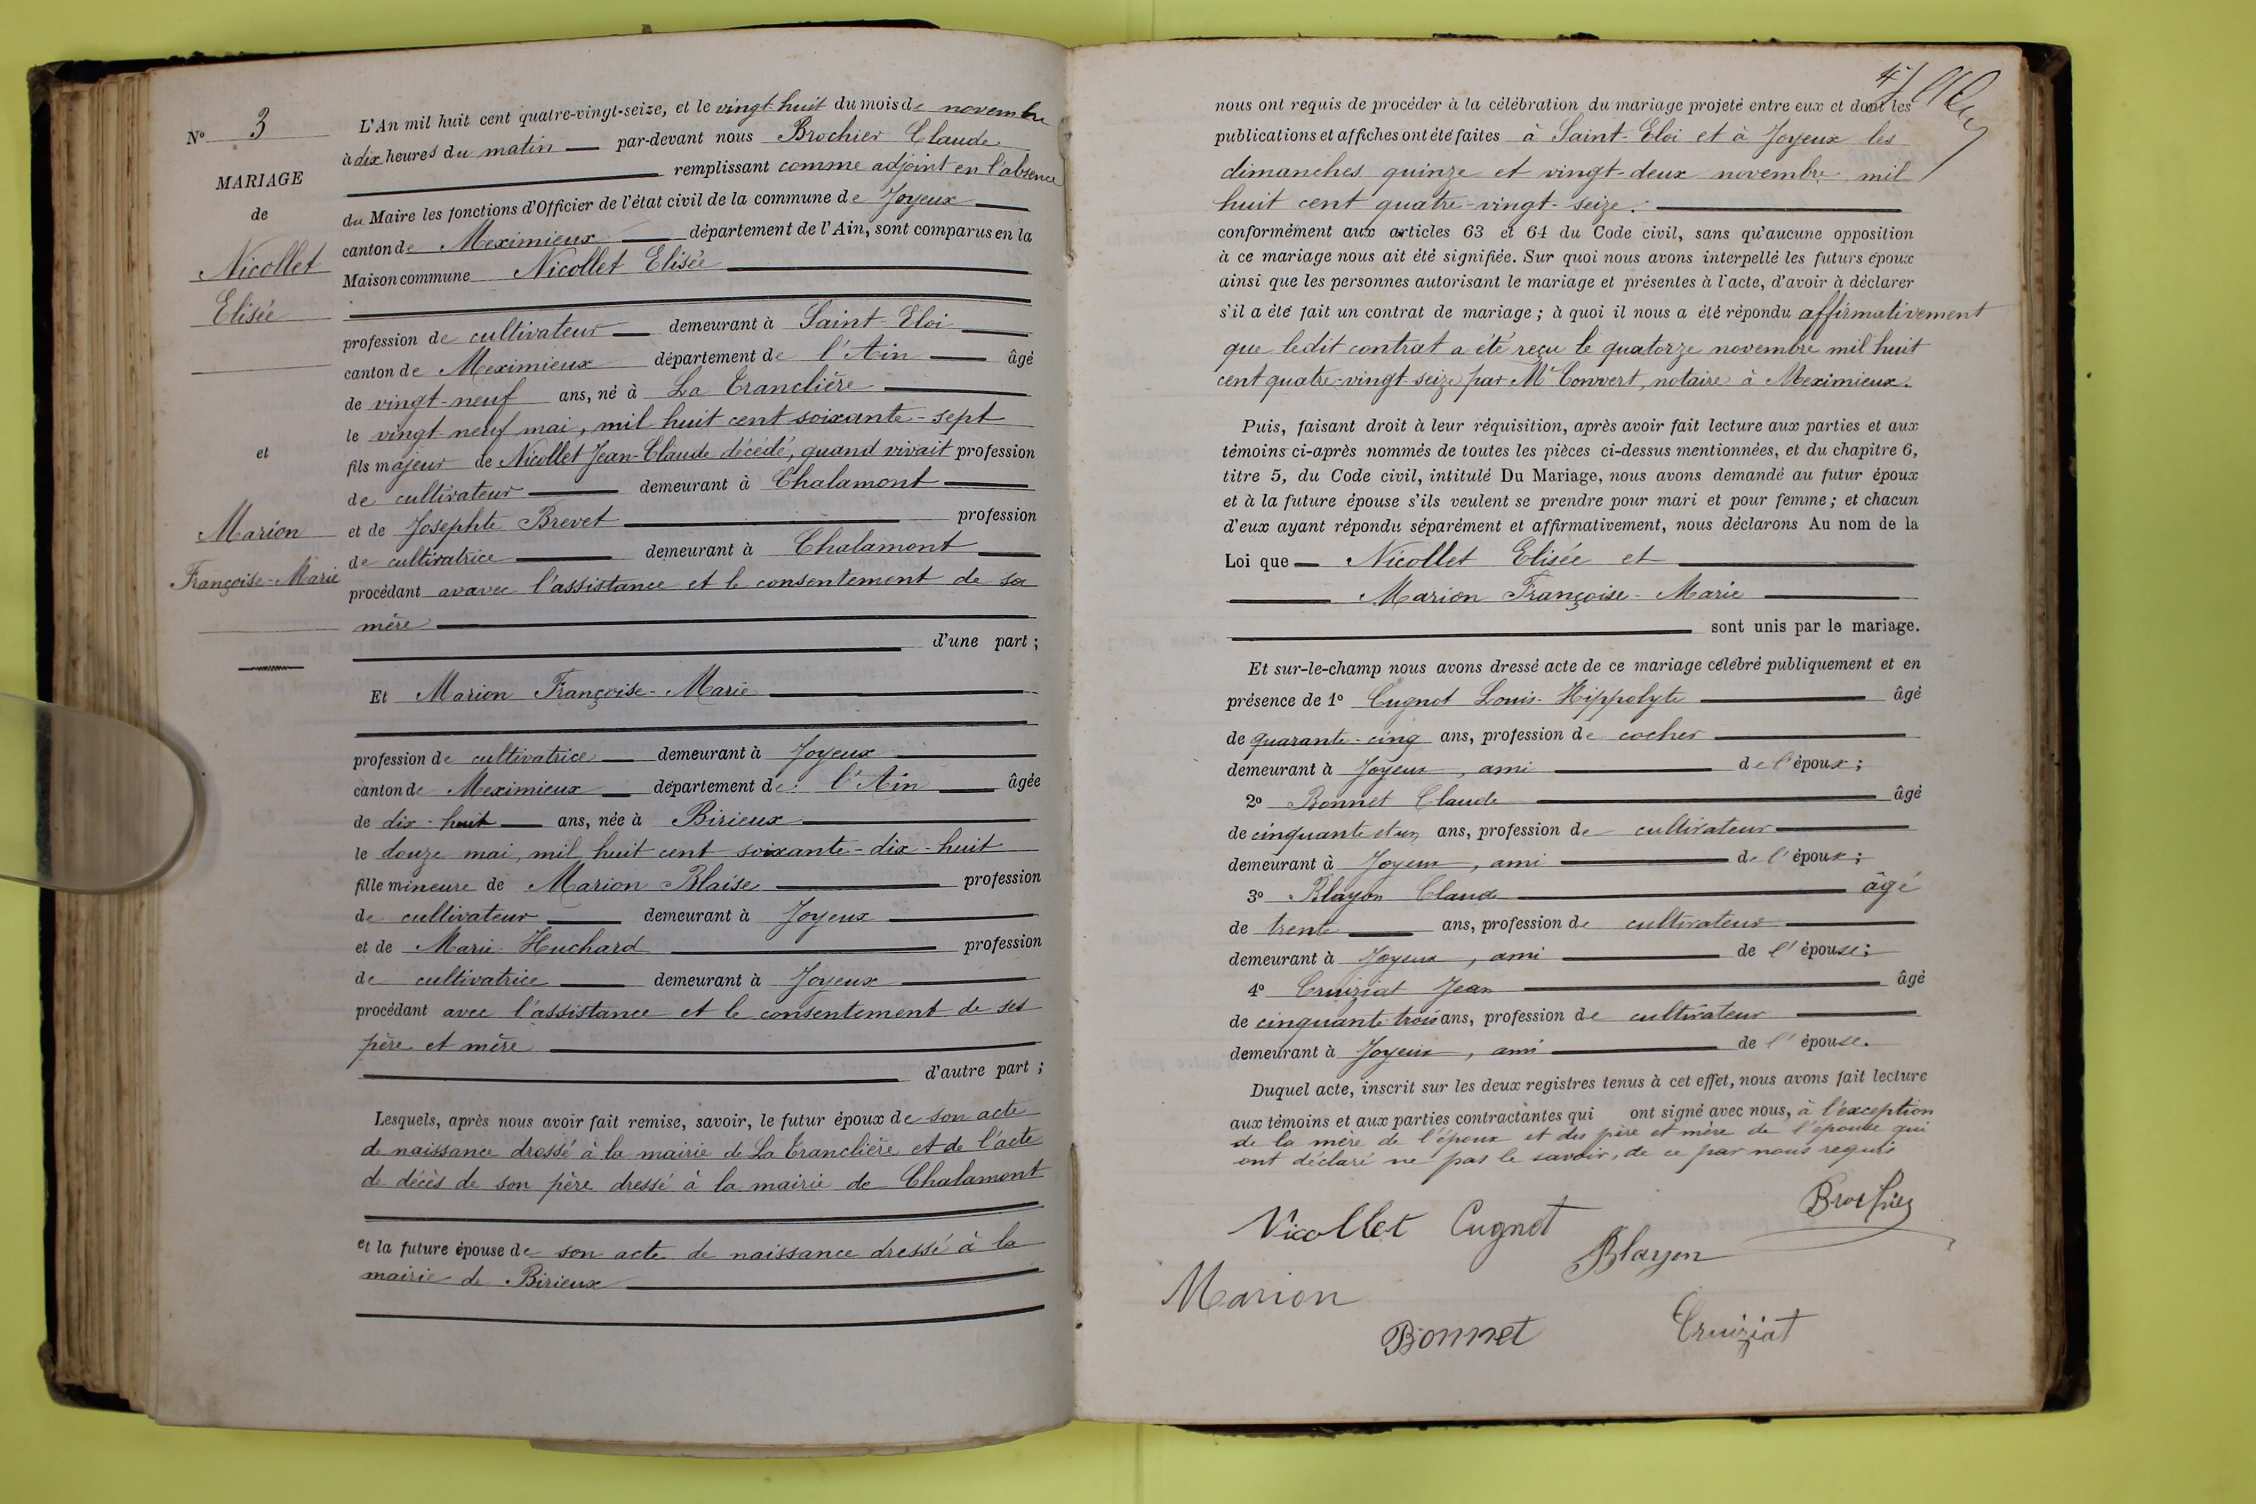 N° 3
MARIAGE
de
Nicollet
Elisée
et
Marion
Françoise-Marie
L'An mil huit cent quatre-vingt-seize, et le vingt-huit du mois de novembre
à dix heures du matin par-devant nous Brochier Claude
remplissant comme adjoint en l'absence
du Maire les fonctions d'Officier de l'état civil de la commune de Joyeux
canton de Meximieux département de l'Ain, sont comparus en la
Maison commune Nicollet Elisée
profession de cultivateur demeurant à Saint-Eloi
canton de Meximieux département de l'Ain âgé
de vingt-neuf ans, né à La Tranclière
le vingt-neuf mai, mil huit cent soixante-sept
fils majeur de Nicollet Jean-Claude décédé, quand vivait profession
de cultivateur demeurant à Chalamont
et de Josephte Brevet profession
de cultivatrice demeurant à Chalamont
procédant avavec l'assistance et le consentement de sa
mère
d'une part ;
Et Marion Françoise-Marie
profession de cultivatrice demeurant à Joyeux
canton de Meximieux département de l'Ain âgée
de dix-huit ans, née à Birieux
le douze mai, mil huit cent soixante-dix-huit
fille mineure de Marion Blaise profession
de cultivateur demeurant à Joyeux
et de Marie Huchard profession
de cultivatrice demeurant à Joyeux
procédant avec l'assistance et le consentement de ses
père et mère
d'autre part ;
Lesquels, après nous avoir fait remise, savoir, le futur époux de son acte
de naissance dressé à la mairie de La Tranclière et de l'acte
de décès de son père dressé à la mairie de Chalamont
et la future épouse de son acte de naissance dressé à la
mairie de Birieux
nous ont requis de procéder à la célébration du mariage projeté entre eux et dont les
publications et affiches ont été faites à Saint-Eloi et à Joyeux les
dimanches quinze et vingt-deux novembre mil
huit cent quatre-vingt-seize.
conformément aux articles 63 et 64 du Code civil, sans qu'aucune opposition
à ce mariage nous ait été signifiée. Sur quoi nous avons interpellé les futurs époux
ainsi que les personnes autorisant le mariage et présentes à l'acte, d'avoir à déclarer
s'il a été fait un contrat de mariage ; à quoi il nous a été répondu affirmativement
que ledit contrat a été reçu le quatorze novembre mil huit
cent quatre-vingt-seize par Me Convert, notaire à Meximieux.
Puis, faisant droit à leur réquisition, après avoir fait lecture aux parties et aux
témoins ci-après nommés de toutes les pièces ci-dessus mentionnées, et du chapitre 6,
titre 5, du Code civil, intitulé Du Mariage, nous avons demandé au futur époux
et à la future épouse s'ils veulent se prendre pour mari et pour femme ; et chacun
d'eux ayant répondu séparément et affirmativement, nous déclarons Au nom de la
Loi que Nicollet Elisée et
Marion Françoise-Marie
sont unis par le mariage.
Et sur-le-champ nous avons dressé acte de ce mariage célébré publiquement et en
présence de 1° Cugnot Louis-Hippolyte âgé
de quarante-cinq ans, profession de cocher
demeurant à Joyeux, ami de l'époux ;
2° Bonnet Claude âgé
de cinquante et un ans, profession de cultivateur
demeurant à Joyeux, ami de l'époux ;
3° Blayon Claude âgé
de trente ans, profession de cultivateur
demeurant à Joyeux, ami de l'épouse ;
4° Cruiziat Jean âgé
de cinquante-trois ans, profession de cultivateur
demeurant à Joyeux, ami de l'épouse.
Duquel acte, inscrit sur les deux registres tenus à cet effet, nous avons fait lecture
aux témoins et aux parties contractantes qui ont signé avec nous, à l'exception
de la mère de l'époux et des père et mère de l'épouse qui
ont déclaré ne pas le savoir, de ce par nous requis
Brochier
Nicollet Cugnot
Blayon
Marion
Bonnet Cruiziat